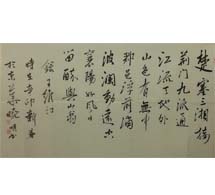 楚塞三湘接
荆门九派通
江流天地外
山色有無中
郡邑浮前浦
波澜動遠空
襄陽好風日
留醉與山翁
王维
辛卯